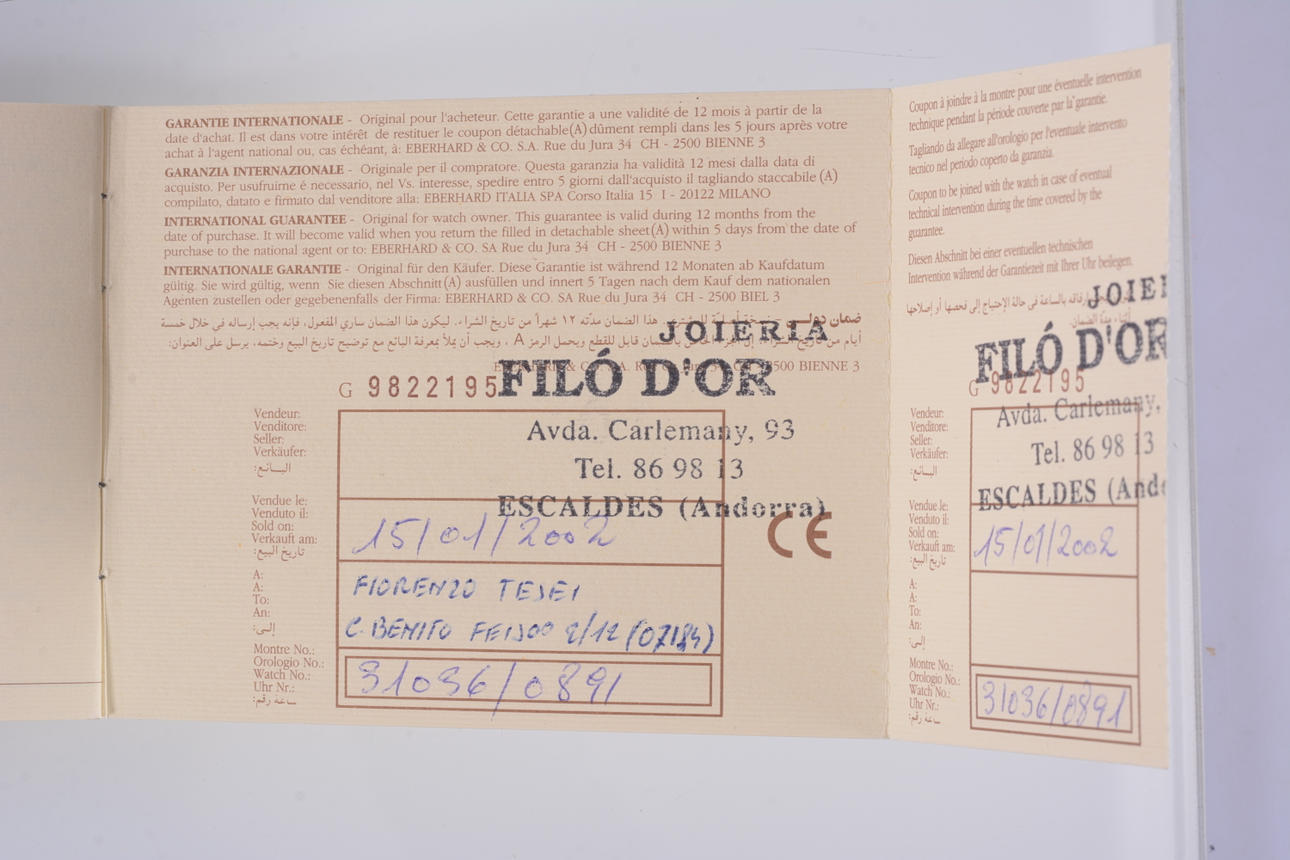 GARANTIE INTERNATIONALE - Original pour l'acheteur. Cette garantie a une validité de 12 mois à partir de la
date d'achat. Il est dans votre intérêt de restituer le coupon détachable(A) dûment rempli dans les 5 jours après votre
achat à l'agent national ou, cas échéant, à: EBERHARD & CO. S.A. Rue du Jura 34 CH - 2500 BIENNE 3
GARANZIA INTERNAZIONALE - Originale per il compratore. Questa garanzia ha validità 12 mesi dalla data di
acquisto. Per usufruirne é necessario, nel Vs. interesse, spedire entro 5 giorni dall'acquisto il tagliando staccabile (A)
compilato, datato e firmato dal venditore alla: EBERHARD ITALIA SPA Corso Italia 15 I - 20122 MILANO
INTERNATIONAL GUARANTEE - Original for watch owner. This guarantee is valid during 12 months from the
date of purchase. It will become valid when you return the filled in detachable sheet(A) within 5 days from the date of
purchase to the national agent or to: EBERHARD & CO. SA Rue du Jura 34 CH - 2500 BIENNE 3
INTERNATIONALE GARANTIE - Original für den Käufer. Diese Garantie ist während 12 Monaten ab Kaufdatum
gültig. Sie wird gültig, wenn Sie diesen Abschnitt(A) ausfüllen und innert 5 Tagen nach dem Kauf dem nationalen
Agenten zustellen oder gegebenenfalls der Firma: EBERHARD & CO. SA Rue du Jura 34 CH - 2500 BIEL 3
ضمان دولي هذا الضمان مدّته ١٢ شهراً من تاريخ الشراء. ليكون هذا الضمان ساري المفعول، فإنه يجب إرساله في خلال خمسة
أيام من قابل للقطع ويحمل الرمز A ، ويجب أن يملأ بمعرفة البائع مع توضيح تاريخ البيع وختمه، يرسل على العنوان:
2500 BIENNE 3
JOIERIA
FILÓ D'OR
Avda. Carlemany, 93
Tel. 86 98 13
ESCALDES (Andorra)
G 9822195
CE
Vendeur:
Venditore:
Seller:
Verkäufer:
البـائـع:
Vendue le:
Venduto il:
Sold on:
Verkauft am:
تاريخ البيع:
15/01/2002
A:
A:
To:
An:
إلـى:
FIORENZO TESEI
C. BENITO FEIJOO 2/12 (07184)
Montre No.:
Orologio No.:
Watch No.:
Uhr Nr.:
ساعة رقم:
31036/0891
Coupon à joindre à la montre pour une éventuelle intervention
technique pendant la période couverte par la garantie.
Tagliando da allegare all'orologio per l'eventuale intervento
tecnico nel periodo coperto da garanzia.
Coupon to be joined with the watch in case of eventual
technical intervention during the time covered by the
guarantee.
Diesen Abschnitt bei einer eventuellen technischen
Intervention während der Garantiezeit mit Ihrer Uhr beilegen.
بالساعة في حالة الإحتياج إلى فحصها أو إصلاحها
أثناء مدّة الضمان.
JOIE
FILÓ D'OR
G 9822195
Avda. Carlemany,
Tel. 86 98 13
ESCALDES (Ando
Vendeur:
Venditore:
Seller:
Verkäufer:
البـائـع:
Vendue le:
Venduto il:
Sold on:
Verkauft am:
تاريخ البيع:
15/01/2002
A:
A:
To:
An:
إلـى:
Montre No.:
Orologio No.:
Watch No.:
Uhr Nr.:
ساعة رقم:
31036/0891